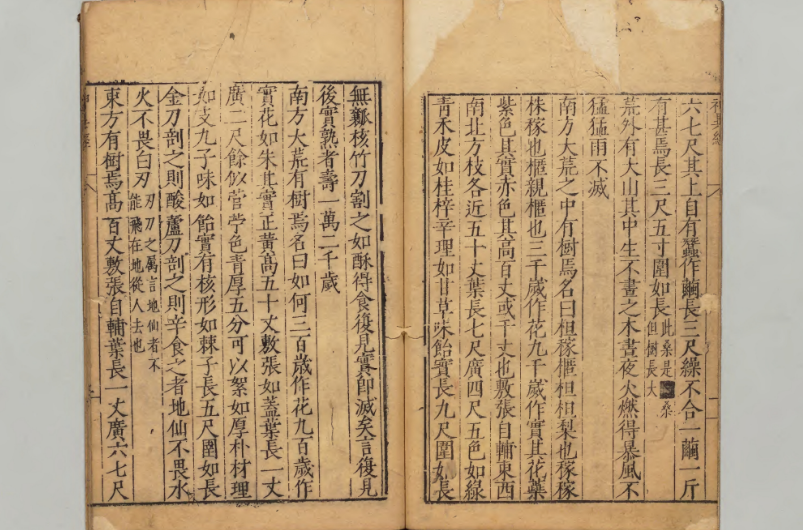 神異經
六七尺其上自有蠶作繭長三尺繰不合一繭一斤
有甚焉長三尺五寸圍如長
此桑是桑
但樹長大
荒外有大山其中生不晝之木晝夜火燃得暴風不
猛猛雨不滅
南方大荒之中有樹焉名曰柤稼櫃柤柤梨也稼稼
株稼也櫃親櫃也三千歲作花九千歲作實其花蘂
紫色其實赤色其高百丈或千丈也敷張自輔東西
南北方枝各近五十丈葉長七尺廣四尺五色如綠
青木皮如桂梓辛理如甘草味飴實長九尺圍如長
無瓤核竹刀割之如酥得食復見實即滅矣言復見
後實熟者壽一萬二千歲
南方大荒有樹焉名曰如何三百歲作花九百歲作
實花如朱其實正黃高五十丈敷張如蓋葉長一丈
廣二尺餘似菅苧色青厚五分可以絮如厚朴材理
如支九子味如飴實有核形如棘子長五尺圍如長
金刀剖之則酸蘆刀剖之則辛食之者地仙不畏水
火不畏白刃
刃刀之屬言地仙者不
能飛在地從人去也
東方有樹焉高百丈敷張自輔葉長一丈廣六七尺